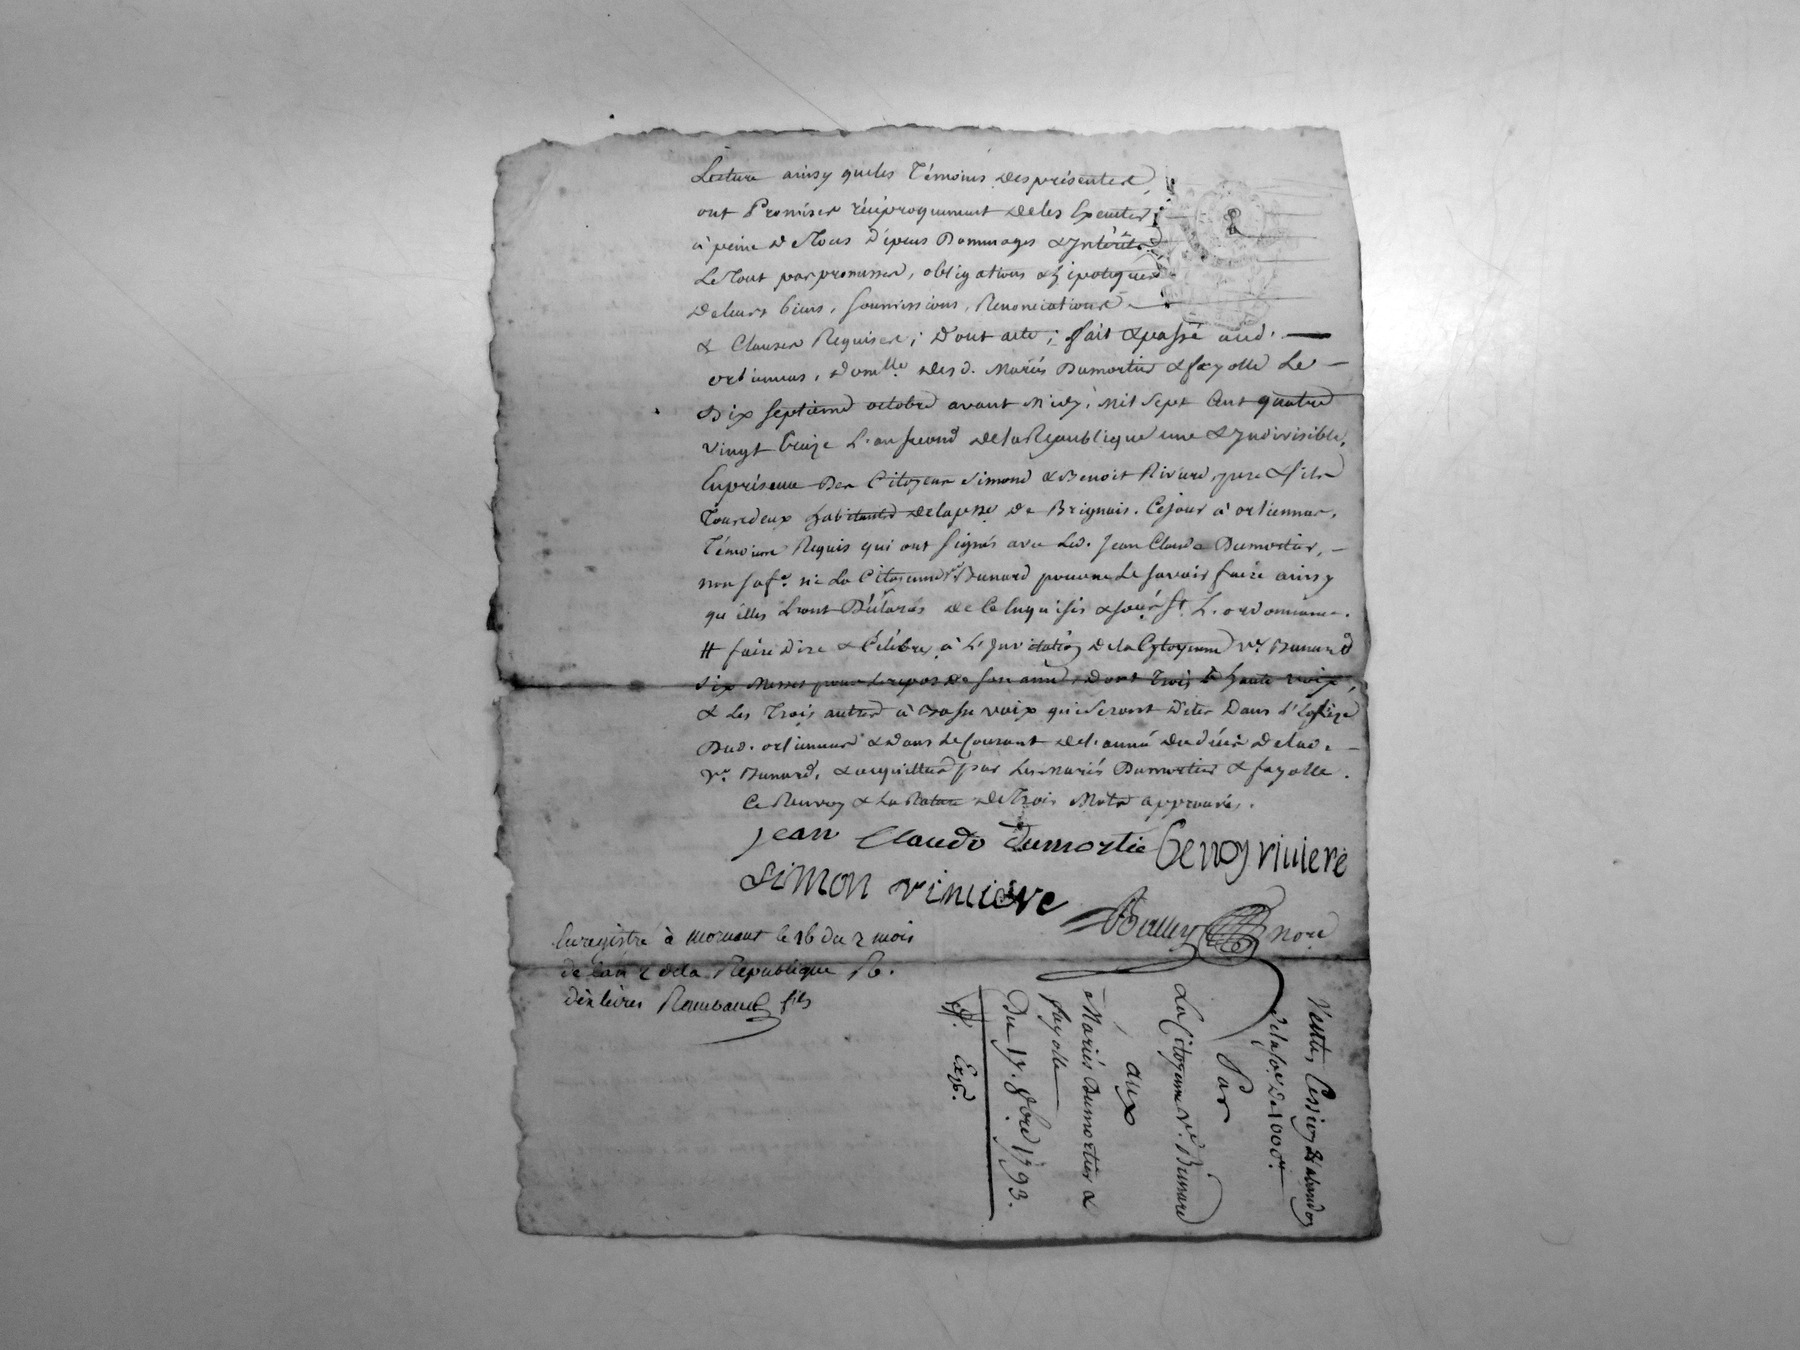 Lecture ainsy que les Témoins des présentes,
ont Promises réciproquement de les Exeuter
à peine de Tous dépens Dommages & Intérêts
Le Tout par promesses, obligations & hipoteques
de leurs biens, soumissions, Renonciations
& Clauses Requises; Dont acte; fait & passé aud.
orliennas, domlle desd. Mariés Dumortier & fayolle Le
Dix septieme octobre avant Midy, mil sept Cent quatre
vingt treize L'an second de la Republique une & Indivisible,
En présence Des Citoyens Simond & Benoit Riviere, pere & fils
Tous deux habitants de la psse de Brignais, Cejour à orliennas,
Témoins Requis qui ont signés avec Led. Jean Claude Dumortier,
non sa fe. ni La Citoyenne Ve Bunard pour ne Le savoir faire ainsy
qu'elles L'ont Déclarés de Ce Enquises & St. L'ordonnance.
# faire dire & Célébrer à L'Invitation de la Citoyenne Ve Bunard
six Messes pour Le repos de son ame, Dont Trois à haute voix,
& Les Trois autres à Basse voix qui seront Dites Dans L'Eglize
Dud. orliennas & Dans Le Courant de L'année du décès de lad.
Ve Bunard, & acquittées par Les Mariés Dumortier & fayolle.
Ce Renvoy & La Rature De Trois Mots approuvés.
Jean Claude Dumortie Benoy riviere
Simon rivuiere
nore
Enregistré à mornant le 16 du 2 mois
de l'an 2 de la Republique
dix livres fils
Vente, Cession & abandon
de la se. de 1000lt.
Par
La Citoyenne Ve. Bunard
aux
Mariés Dumortier &
fayolle
Du 17. 8bre 1793.
Exp.